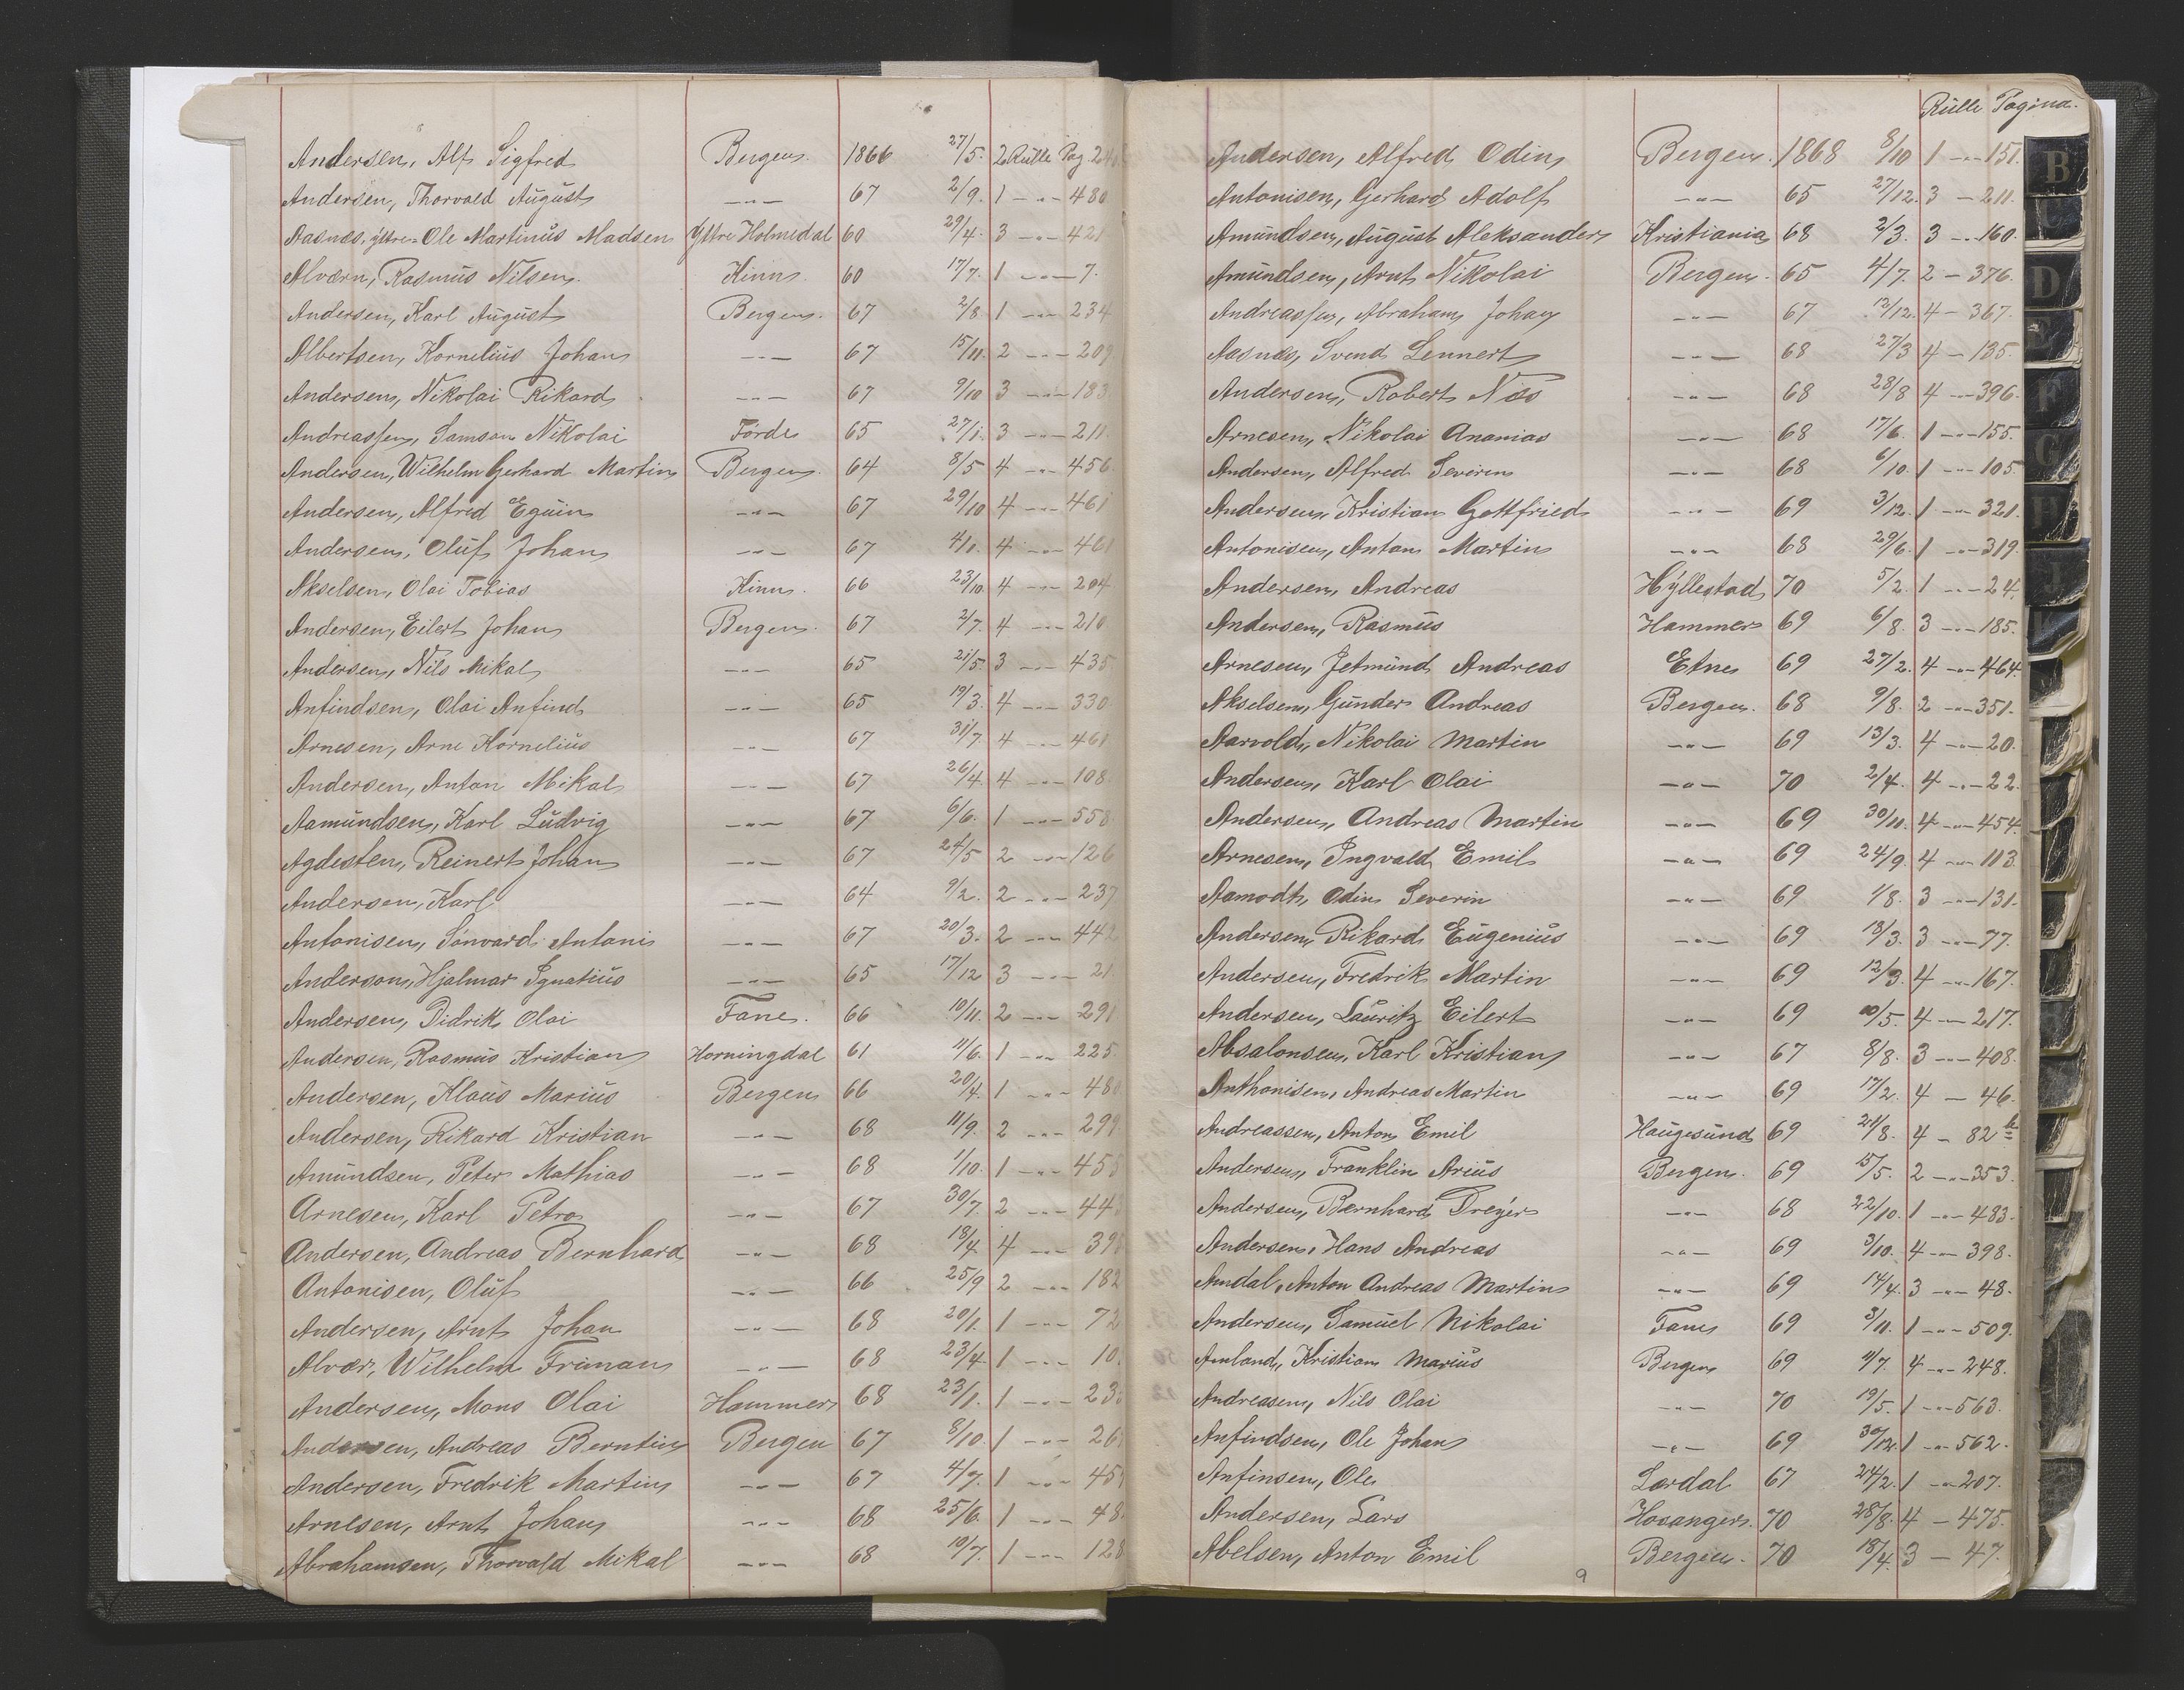 Andersen, Alf Sigfred Bergen. 1866 27/5. 2 Rulle Pag. 24
Andersen, Thorvald August -"- 67 2/9. 1 -"- 480
Aasnæs, ytre- Ole Martinus Madsen Yttre Holmedal 60 29/4. 3 -"- 421
Alværn, Rasmus Nilsen. Kinn 60 17/7. 1 -"- 7.
Andersen, Karl August Bergen. 67 2/8 1 -"- 234
Albertsen, Kornelius Johan -"- 67 15/11. 2 -"- 209
Andersen, Nikolai Rikard -"- 67 9/10 3 -"- 183
Andreassen, Samson Nikolai Förde 65 27/1. 3 -"- 211.
Andersen, Wilhelm Gerhard Martin Bergen. 64 8/5 4 -"- 456
Andersen, Alfred Eguin -"- 67 29/10 4 -"- 461
Andersen, Oluf Johan -"- 67 4/1. 4 -"- 461
Akselsen, Olai Tobias Kinn. 66 23/10. 4 -"- 204
Andersen, Eilert Johan Bergen. 67 2/7. 4 -"- 210
Andersen, Nils Mikal -"- 65 21/5 3 -"- 435
Anfindsen, Olai Anfind -"- 65 19/3. 4 -"- 330
Arnesen, Arne Kornelius -"- 67 31/7 4 -"- 461
Andersen, Anton Mikal -"- 67 26/4. 4 -"- 108
Aamundsen, Karl Ludvig -"- 67 6/6. 1 -"- 558
Agdesten, Reinert Johan -"- 67 24/5 2 -"- 126
Andersen, Karl -"- 64 9/2. 2 -"- 237
Antonisen, Sönvard Antoni -"- 67 20/3. 2 -"- 442
Anderson, Hjalmar Ignatius -"- 65 17/12 3 -"- 21
Andersen, Didrik Olai Fane. 66 10/11. 2 -"- 291
Andersen, Rasmus Kristian Horningdal 61 11/6. 1 -"- 225.
Andersen, Klaus Marius Bergen 66 20/4. 1 -"- 480
Andersen, Rikard Kristian -"- 68 11/9. 2 -"- 299
Amundsen, Peter Mathias -"- 68 1/10. 1 -"- 455
Arnesen, Karl Petro -"- 67 30/7. 2 -"- 443
Andersen, Andreas Bernhard -"- 68 18/4 4 -"- 39
Antonisen, Oluf -"- 66 25/9 2 -"- 182
Andersen, Arnt Johan -"- 68 20/1. 1 -"- 72
Alvær, Wilhelm Friman -"- 68 23/4 1 -"- 10.
Andersen, Mons Olai Hammer 68 23/1. 1 -"- 23
Andersen, Andreas Berntin Bergen 67 8/10. 1 -"- 26
Andersen, Fredrik Martin -"- 67 4/7. 1 -"- 45
Arnesen, Arnt Johan -"- 68 25/6. 1 -"- 48
Abrahamsen, Thorvald Mikal -"- 68 10/7. 1 -"- 128
Rulle Pagina.
Andersen, Alfred Odin Bergen. 1868 8/10 1 -"- 151.
Antonisen, Gerhard Adolf -"- 65 27/12. 3 - 211.
Amundsen, August Aleksander Kristiania 68 2/3. 3 -"- 160.
Amundsen, Arnt Nikolai Bergen. 65 4/7. 2 - 376.
Andreassen, Abraham Johan -"- 67 12/12. 4 - 367.
Aasnæs, Svend Lennert -"- 68 27/3 4 - 135.
Andersen, Robert Nös -"- 68 28/8 4 -"- 396.
Arnesen, Nikolai Ananias -"- 68 17/6. 1 -"- 155.
Andersen, Alfred Severin -"- 68 6/10. 1 -"- 105
Andersen, Kristian Gottfried -"- 69 3/12. 1 -"- 321.
Antonisen, Anton Martin -"- 68 29/6. 1 -"- 319.
Andersen, Andreas Hyllestad 70 5/2. 1 -"- 24.
Andersen, Rasmus Hammer 69 6/8. 3 -"- 185.
Arnesen, Jetmund Andreas Etne 69 27/2. 4 -"- 464.
Akselsen, Gunder Andreas Bergen. 68 9/8. 2 -"- 351.
Aarvold, Nikolai Martin -"- 69 13/3. 4 -"- 20.
Andersen, Karl Olai -"- 70 2/4. 4 -"- 22.
Andersen, Andreas Martin -"- 69 30/11. 4 -"- 454.
Arnesen, Ingvald Emil -"- 69 24/9. 4 -"- 113.
Aamodt, Odin Severin -"- 69 1/8. 3 -"- 131.
Andersen, Rikard Eugenius -"- 69 18/3. 3 -"- 77.
Andersen, Fredrik Martin -"- 69 12/3. 4 -"- 167.
Andersen, Lauritz Eilert -"- 69 10/5. 4 -"- 217.
Absalonsen, Karl Kristian -"- 67 8/8. 3 -"- 408.
Anthonisen, Andreas Martin -"- 69 17/2. 4 - 46.
Andreassen, Anton Emil Haugesund 69 21/8. 4 - 82 b
Andersen, Franklin Arius Bergen. 69 15/5. 2 -"- 353.
Andersen, Bernhard Dreyer -"- 68 22/10. 1 -"- 483.
Andersen, Hans Andreas -"- 69 3/10. 4 -"- 398.
Amdal, Anton Andreas Martin -"- 69 14/4. 3 -"- 48.
Andersen, Samuel Nikolai Fane 69 3/11. 1 -"- 509.
Amland, Kristian Marius Bergen 69 11/7. 4 -"- 248.
Andreasen, Nils Olai -"- 70 19/5. 1 -"- 563.
Anfindsen, Ole Johan -"- 69 30/12. 1 -"- 562.
Anfinsen, Ole Lærdal 67 24/2. 1 -"- 207.
Andersen, Lars Hosanger. 70 28/8. 4 - 475.
Abelsen, Anton Emil Bergen. 70 18/4. 3 - 47.
9
B
C
D
E
F
G
H
I
K